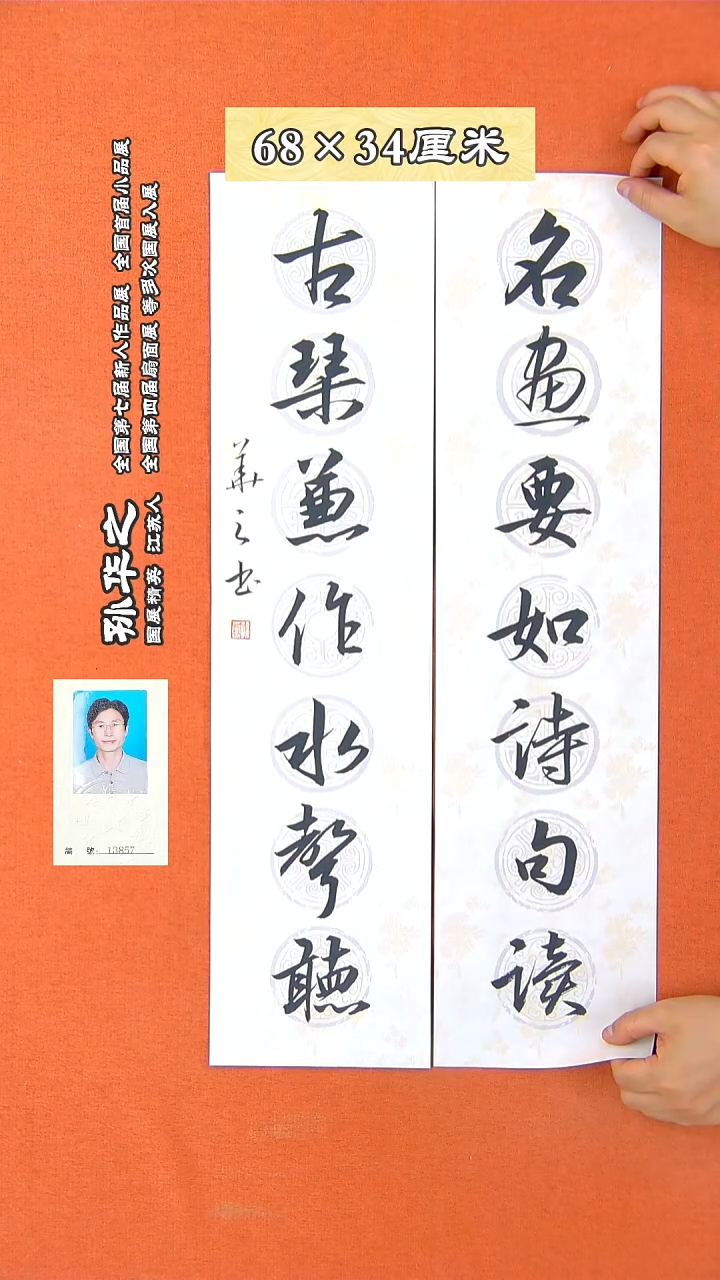 68×34厘米
名画要如诗句读
古琴兼作水聲聽
華之书
全国第七届新人作品展 全国首届小品展
全国第四届扇面展 等多次国展入展
孙华之
国展精英 江苏人
编 號: 13857